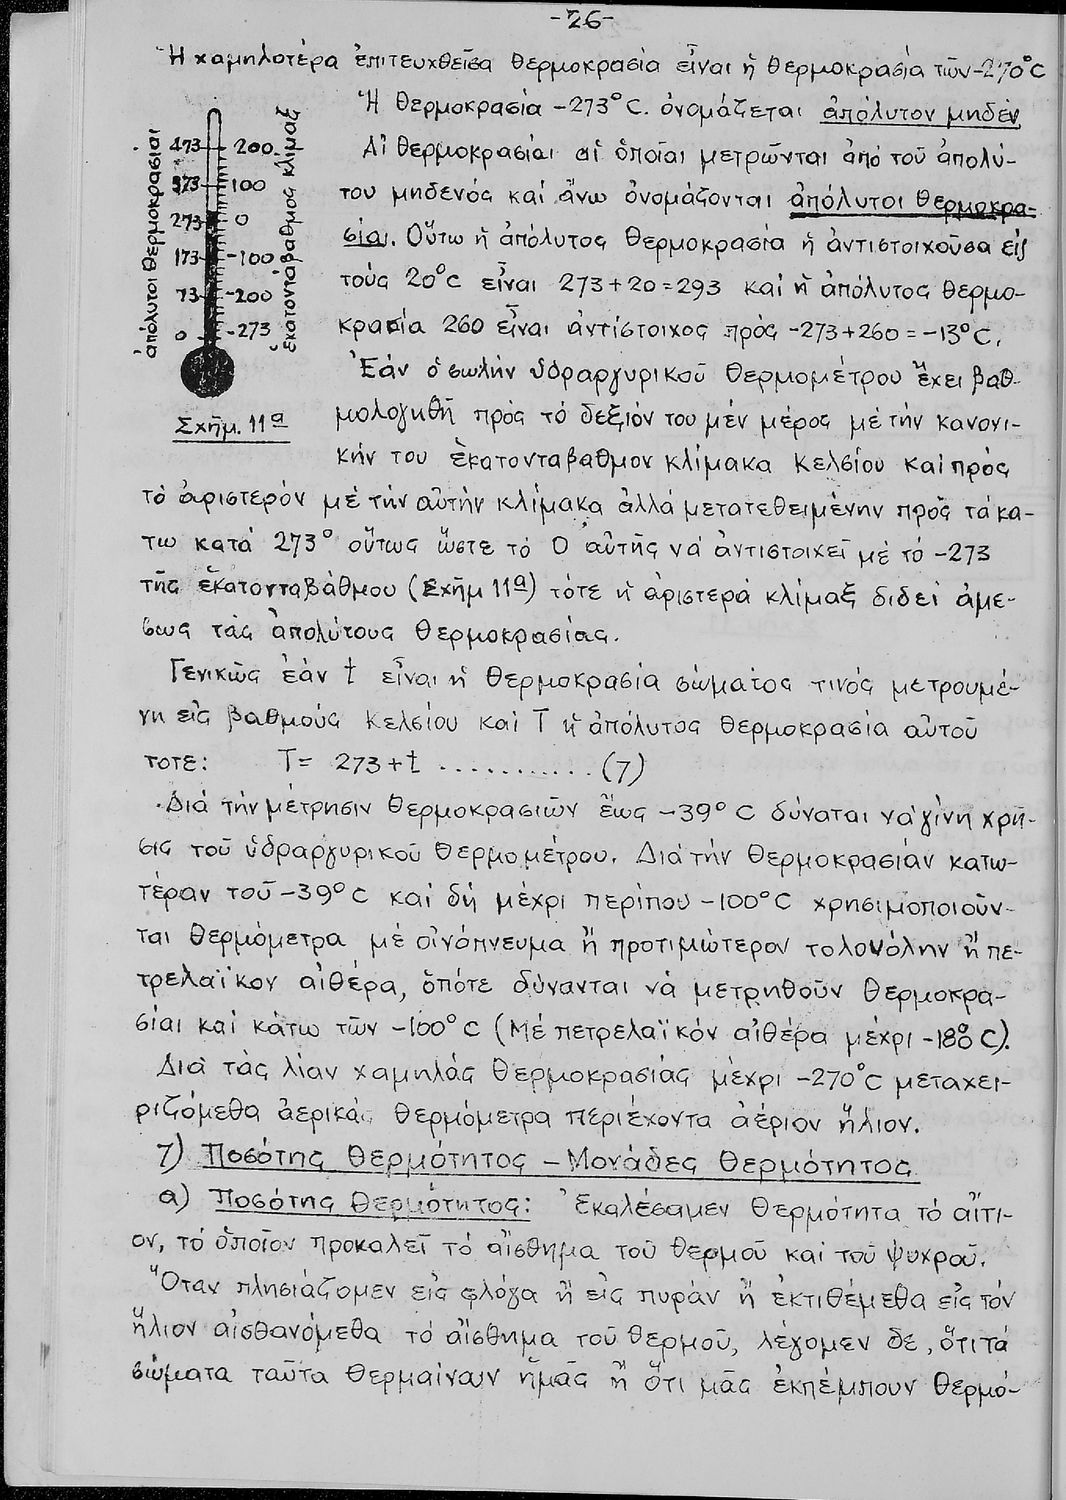 -26-
Ἡ χαμηλοτέρα ἐπιτευχθεῖσα θερμοκρασία εἶναι ἡ θερμοκρασία τῶν -270°C
Ἡ θερμοκρασία -273°C. ὀνομάζεται ἀπόλυτον μηδέν
Αἱ θερμοκρασίαι αἱ ὁποῖαι μετρῶνται ἀπό τοῦ ἀπολύ-
του μηδενός καί ἄνω ὀνομάζονται ἀπόλυτοι θερμοκρα-
σίαι. Οὕτω ἡ ἀπόλυτος θερμοκρασία ἡ ἀντιστοιχοῦσα εἰς
τούς 20°C εἶναι 273+20=293 καί ἡ ἀπόλυτος θερμο-
κρασία 260 εἶναι ἀντίστοιχος πρός -273+260=-13°C.
Ἐάν ὁ σωλήν ὑδραργυρικοῦ θερμομέτρου ἔχει βαθ-
μολογηθῆ πρός τό δεξιόν του μέν μέρος μέ τήν κανονι-
κήν του ἑκατονταβαθμον κλίμακα Κελσίου καί πρός
τό ἀριστερόν μέ τήν αὐτήν κλίμακα ἀλλά μετατεθειμένην πρός τά κα-
τω κατά 273° οὕτως ὥστε τό 0 αὐτῆς νά ἀντιστοιχεῖ μέ τό -273
τῆς ἑκατονταβάθμου (Σχῆμ 11α) τότε ἡ ἀριστερά κλίμαξ δίδει ἀμε-
σως τάς ἀπολύτους θερμοκρασίας.
ἀπόλυτοι θερμοκρασίαι
473 200
373 100
273 0
173 -100
73 -200
0 -273
ἑκατοντάβαθμος κλίμαξ
Σχῆμ. 11α
Γενικῶς ἐάν t εἶναι ἡ θερμοκρασία σώματος τινός μετρουμέ-
νη εἰς βαθμούς Κελσίου καί T ἡ ἀπόλυτος θερμοκρασία αὐτοῦ
τοτε: T= 273+t ........... (7)
Διά τήν μέτρησιν θερμοκρασιῶν ἕως -39°C δύναται νά γίνη χρῆ-
σις τοῦ ὑδραργυρικοῦ θερμομέτρου. Διά τήν θερμοκρασίαν κατω-
τέραν τοῦ -39°C καί δή μέχρι περίπου -100°C χρησιμοποιοῦν-
ται θερμόμετρα μέ οἰνόπνευμα ἤ προτιμώτερον τολουόλην ἤ πε-
τρελαϊκον αἰθέρα, ὁπότε δύνανται νά μετρηθοῦν θερμοκρα-
σίαι καί κάτω τῶν -100°C (Μέ πετρελαϊκόν αἰθέρα μέχρι -180°C).
Διά τάς λίαν χαμηλάς θερμοκρασίας μέχρι -270°C μεταχει-
ριζόμεθα ἀερικά θερμόμετρα περιέχοντα ἀέριον ἥλιον.
7) Ποσότης θερμότητος - Μονάδες θερμότητος
α) Ποσότης θερμότητος: Ἐκαλέσαμεν θερμότητα τό αἴτι-
ον, τό ὁποῖον προκαλεῖ τό αἴσθημα τοῦ θερμοῦ καί τοῦ ψυχροῦ.
Ὅταν πλησιάζομεν εἰς φλόγα ἤ εἰς πυράν ἤ ἐκτιθέμεθα εἰς τόν
ἥλιον αἰσθανόμεθα τό αἴσθημα τοῦ θερμοῦ, λέγομεν δε, ὅτι τά
σώματα ταῦτα θερμαίνουν ἡμᾶς ἤ ὅτι μᾶς ἐκπέμπουν θερμό-